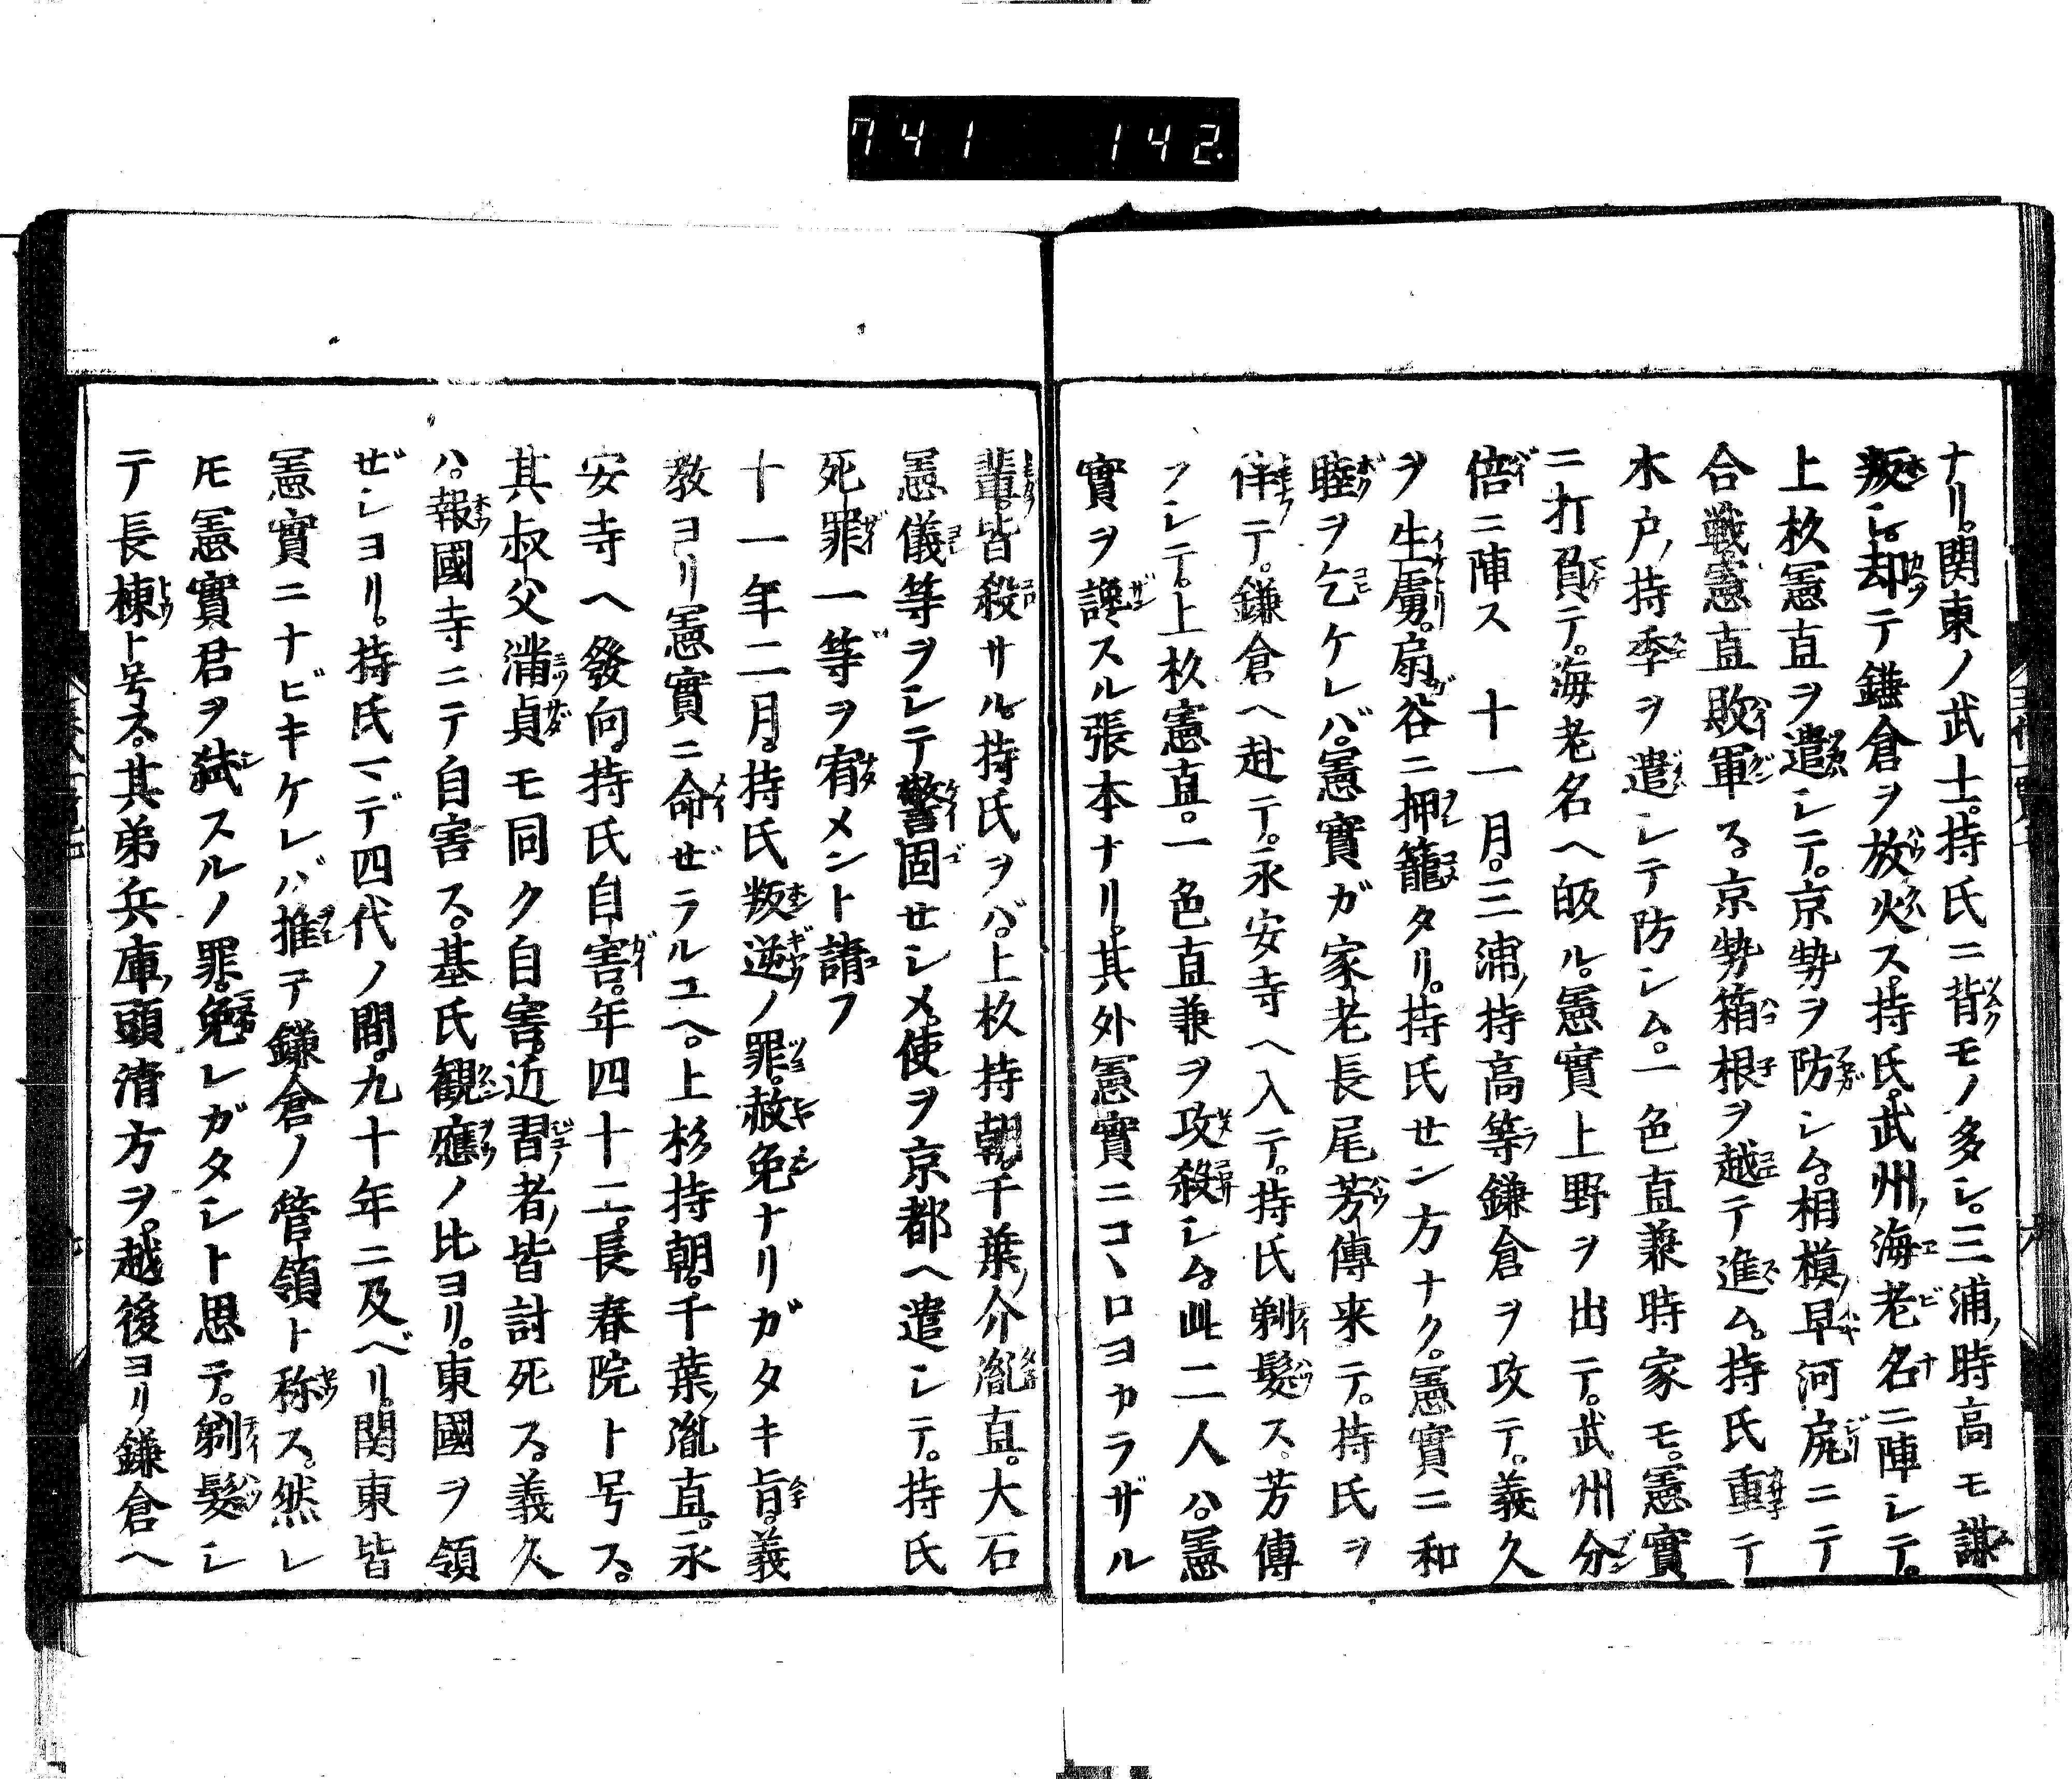 741 142.
ナリ。関東ノ武士。持氏ニ背モノ多シ。三浦ノ時高モ謀
叛シ。却テ鎌倉ヲ放火ス。持氏。武州ノ海老名ニ陣シテ。
上杦憲直ヲ遣シテ。京勢ヲ防シム。相模ノ早河尻ニテ
合戦憲直敗軍ス。京勢箱根ヲ越テ進ム。持氏重テ
木戸ノ持季ヲ遣シテ防シム。一色直兼時家モ。憲實
ニ打負テ。海老名ヘ皈ル。憲實上野ヲ出テ。武州分
倍ニ陣ス 十一月。三浦ノ持高等鎌倉ヲ攻テ。義久
ヲ生虜。扇谷ニ押籠タリ。持氏セン方ナク。憲實ニ和
睦ヲ乞ケレバ。憲實ガ家老長尾芳傳来テ。持氏ヲ
伴テ。鎌倉ヘ赴テ。永安寺ヘ入テ。持氏剃髮ス。芳傳
フシテ。上杦憲直。一色直兼ヲ攻殺シム。此二人ハ。憲
實ヲ讒スル張本ナリ。其外憲實ニコヽロヨカラザル
輩。皆殺サル。持氏ヲバ。上杦持朝。千葉ノ介胤直。大石
憲儀等ヲシテ警固セシメ。使ヲ京都ヘ遣シテ。持氏
死罪一等ヲ宥メント請フ
十一年二月。持氏叛逆ノ罪。赦免ナリガタキ旨。義
教ヨリ憲實ニ命ゼラルユヘ。上杉持朝。千葉ノ胤直。永
安寺ヘ發向。持氏自害。年四十二。長春院ト号ス。
其叔父満貞モ同ク自害。近習者ノ皆討死ス。義久
ハ。報國寺ニテ自害ス。基氏観應ノ比ヨリ。東國ヲ領
ゼシヨリ。持氏マデ四代ノ間。九十年ニ及ベリ。関東皆
憲實ニナビキケレバ推テ鎌倉ノ管領ト称ス。然レ
モ憲實君ヲ弑スルノ罪。免レガタシト思テ。剃髮シ
テ長棟ト号ス。其弟兵庫ノ頭清方ヲ。越後ヨリ鎌倉ヘ